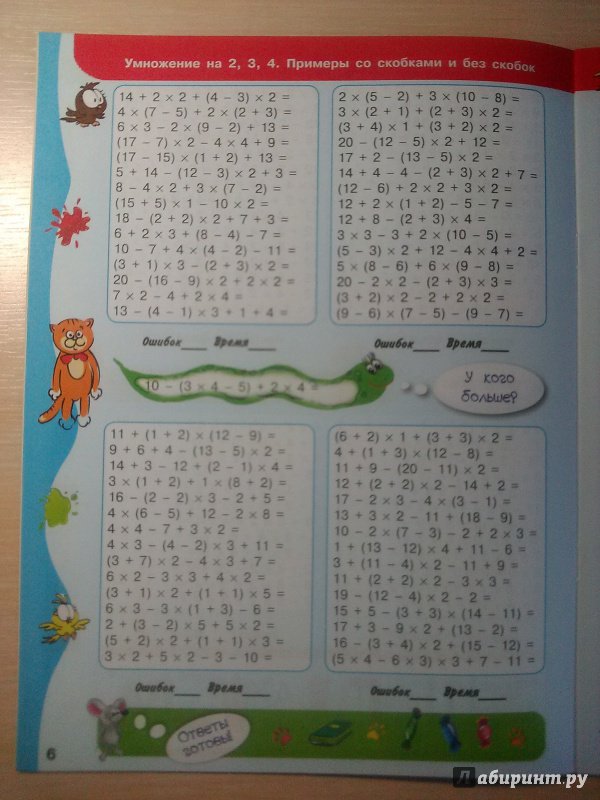 Умножение на 2, 3, 4. Примеры со скобками и без скобок
14 + 2 × 2 + (4 − 3) × 2 =
4 × (7 − 5) + 2 × (2 + 3) =
6 × 3 − 2 × (9 − 2) + 13 =
(17 − 7) × 2 − 4 × 4 + 9 =
(17 − 15) × (1 + 2) + 13 =
5 + 14 − (12 − 3) × 2 + 3 =
8 − 4 × 2 + 3 × (7 − 2) =
(15 + 5) × 1 − 10 × 2 =
18 − (2 + 2) × 2 + 7 + 3 =
6 + 2 × 3 + (8 − 4) − 7 =
10 − 7 + 4 × (4 − 2) − 11 =
(3 + 1) × 3 − (2 + 3) × 2 =
20 − (16 − 9) × 2 + 2 × 2 =
7 × 2 − 4 + 2 × 4 =
13 − (4 − 1) × 3 + 1 + 4 =
Ошибок Время
2 × (5 − 2) + 3 × (10 − 8) =
3 × (2 + 1) + (2 + 3) × 2 =
(3 + 4) × 1 + (3 + 2) × 2 =
20 − (12 − 5) × 2 + 12 =
17 + 2 − (13 − 5) × 2 =
14 + 4 − 4 − (2 + 3) × 2 + 7 =
(12 − 6) + 2 × 2 + 3 × 2 =
12 + 2 × (1 + 2) − 5 − 7 =
12 + 8 − (2 + 3) × 4 =
3 × 3 − 3 + 2 × (10 − 5) =
(5 − 3) × 2 + 12 − 4 × 4 + 2 =
5 × (8 − 6) + 6 × (9 − 8) =
20 − 2 × 2 − (2 + 3) × 3 =
(3 + 2) × 2 − 2 + 2 × 2 =
(9 − 6) × (7 − 5) − (9 − 7) =
Ошибок Время
10 − (3 × 4 − 5) + 2 × 4 =
У кого
больше?
11 + (1 + 2) × (12 − 9) =
9 + 6 + 4 − (13 − 5) × 2 =
14 + 3 − 12 + (2 − 1) × 4 =
3 × (1 + 2) + 1 × (8 + 2) =
16 − (2 − 2) × 3 − 2 + 5 =
4 × (6 − 5) + 12 − 2 × 8 =
4 × 4 − 7 + 3 × 2 =
4 × 3 − (4 − 2) × 3 + 11 =
(3 + 7) × 2 − 4 × 3 + 7 =
6 × 2 − 3 × 3 + 4 × 2 =
(3 + 1) × 2 + (1 + 1) × 5 =
6 × 3 − 3 × (1 + 3) − 6 =
2 + (3 − 2) × 5 + 5 × 2 =
(5 + 2) × 2 + (1 + 1) × 3 =
3 × 2 + 5 × 2 − 3 − 10 =
Ошибок Время
(6 + 2) × 1 + (3 + 3) × 2 =
4 + (1 + 3) × (12 − 8) =
11 + 9 − (20 − 11) × 2 =
12 + (2 + 2) × 2 − 14 + 2 =
17 − 2 × 3 − 4 × (3 − 1) =
13 + 3 × 2 − 11 + (18 − 9) =
10 − 2 × (7 − 3) − 2 + 2 × 3 =
1 + (13 − 12) × 4 + 11 − 6 =
3 + (11 − 4) × 2 − 11 + 9 =
11 + (2 + 2) × 2 − 3 × 3 =
19 − (12 − 4) × 2 − 2 =
15 + 5 − (3 + 3) × (14 − 11) =
17 + 3 − 9 × 2 + (13 − 2) =
16 − (3 + 4) × 2 + (15 − 12) =
(5 × 4 − 6 × 3) × 3 + 7 − 11 =
Ошибок Время
Ответы
готовы!
6
Лабиринт.ру